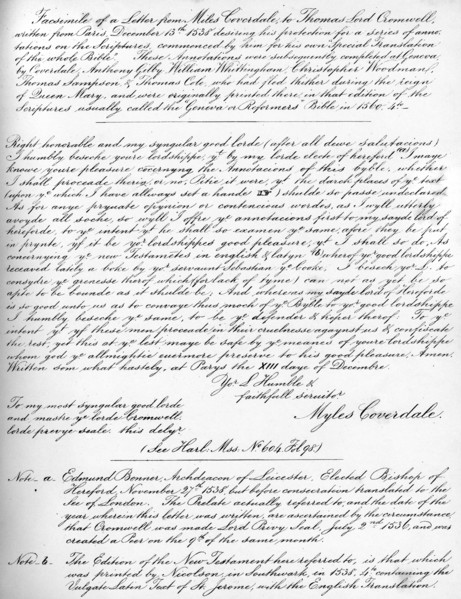 Facsimile of a Letter from Miles Coverdale, to Thomas Lord Cromwell,
written from Paris, December 13th 1538 desiring his protection for a series of anno-
tations on the Scriptures, commenced by him for his own Special Translation
of the whole Bible. These Annotations were subsequently completed at Geneva,
by Coverdale, Anthony Gilby, William Whittingham, Christopher Woodman,
Thomas Sampson, & Thomas Cole, who had fled thither during the reign
of Queen Mary, and were originally printed there, in that edition of the
Scriptures usually called the Geneva or Reformers' Bible in 1560, 4to
Right honorable and my syngular good lorde (after all dewe salutacions)
I humbly beseche youre lordshippe, yt by my lorde elect of hereford (a) I maye
knowe youre pleasure concernyng the Annotacions of this byble, whether
I shall proceade therin, or no. Pitie it were, yt the darck places of ye text
(upon ye which I have allwaye set a hande) shulde so passe undeclared.
As for anye pryvate opynion or contencious wordes, as I wyll utterly
avoyde all soche, so wyll I offre ye annotacions first to my sayde lord of
hereforde, to ye intent yt he shall so examen ye same, afore they be put
in prynte, yf it be yor lordshippes good pleasure, yt I shall so do. As
concernyng ye new Testamētes in english & latyn (b), wherof yor good lordshippe
receaved lately a boke by yor servaunt Sebastian ye Cooke, I besech yor L. to
consydre ye greacesse therof, which (for lack of tyme) can not as yet be so
apte to be bounde as it shulde be. And where as my sayde lord of Hereford
is so good unto us as to convaye thus moch of ye Byble to yor good lordshippe
I humbly beseche ye same, to be ye defender & keper therof. To ye
intent yt yf these men proceade in their cruelnesse agaynst us & confiscate
the rest, yet this at ye lest maye be safe by ye meanes of youre lordshippe
whom god ye allmightie evermore preserve to his good pleasure. Amen.
Written som what hastely, at Parys the XIII daye of Decembre.
Yor L Humble &
faithfull servitor
Myles Coverdale.
To my most syngular good lorde
and mastre ye lorde Cromwell
lorde prevye seale. this delyr
(See Harl. Mss. No 604. Fol 98.)
Note a. Edmund Bonner, Archdeacon of Leicester, Elected Bishop of
Hereford, November 27th 1538, but before consecration translated to the
See of London. The Prelate actually referred to, and the date of the
year wherein this letter was written, are ascertained by the circumstance
that Cromwell was made Lord Privy Seal, July 2nd 1536, and was
created a Peer on the 9th of the same month.
Note b. The Edition of the New Testament here referred to, is that which
was printed by Nicolson, in Southwark, in 1538, 4to containing the
Vulgate Latin Text of St. Jerome, with the English Translation.